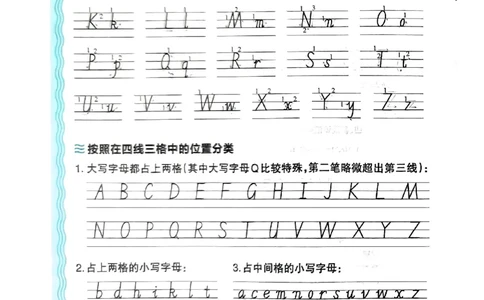 K k L l M m N n O o
P p Q q R r S s T t
U u V v W w X x Y y Z z
按照在四线三格中的位置分类
1.大写字母都占上两格(其中大写字母Q比较特殊,第二笔略微超出第三线):
A B C D E F G H I J K L M
N O P Q R S T U V W X Y Z
2.占上两格的小写字母: 3.占中间格的小写字母:
b d h i k l t a c e m n o r s u v w x z